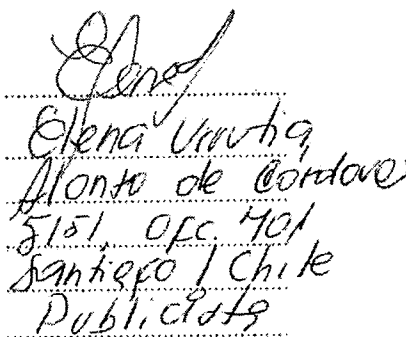 Elena
Elena Urrutia
Alonso de Cordova
5151 Ofc. 401
Santiago / Chile
Publicista